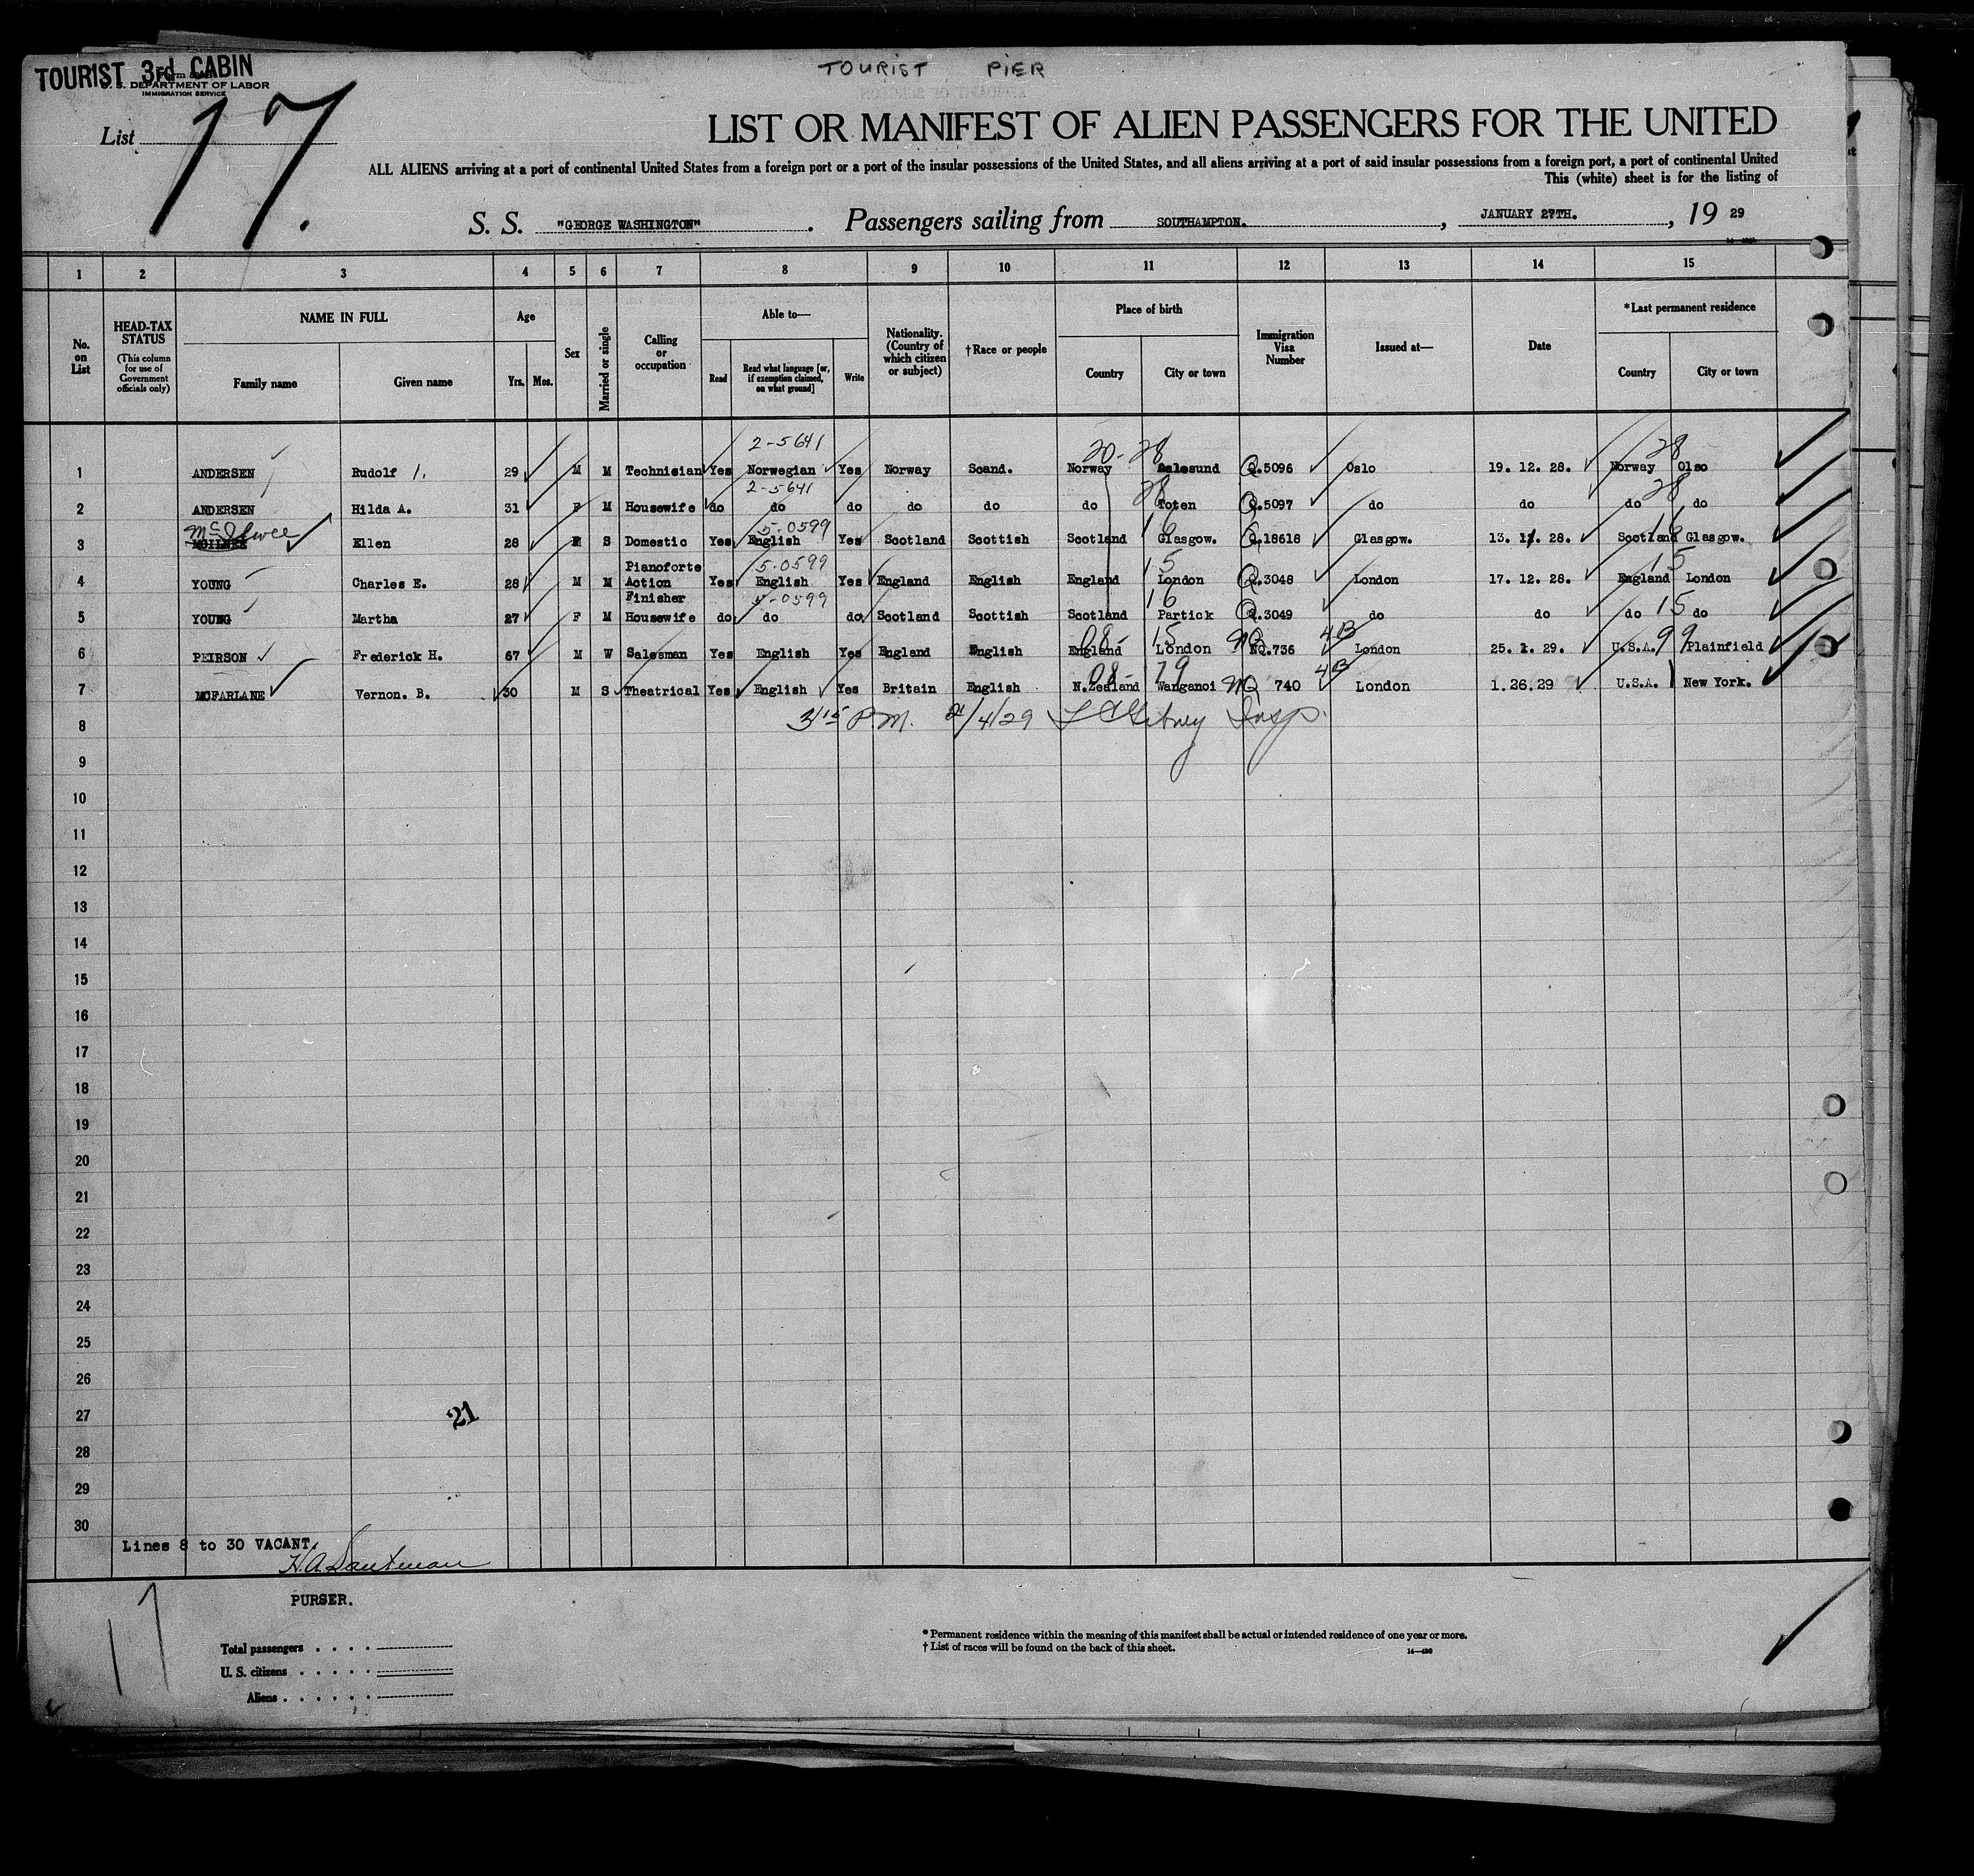 TOURIST 3rd CABIN
TOURIST PIER
U. S. DEPARTMENT OF LABOR
IMMIGRATION SERVICE
List 17.
LIST OR MANIFEST OF ALIEN PASSENGERS FOR THE UNITED
ALL ALIENS arriving at a port of continental United States from a foreign port or a port of the insular possessions of the United States, and all aliens arriving at a port of said insular possessions from a foreign port, a port of continental United
This (white) sheet is for the listing of
S. S. "GEORGE WASHINGTON" . Passengers sailing from SOUTHAMPTON. , JANUARY 27TH. , 19 29
1 2 3 4 5 6 7 8 9 10 11 12 13 14 15
No. on List
HEAD-TAX STATUS (This column for use of Government officials only)
NAME IN FULL
Family name Given name
Age
Yrs. Mos.
Sex
Married or single
Calling or occupation
Able to—
Read Read what language [or, if exemption claimed, on what ground] Write
Nationality. (Country of which citizen or subject)
†Race or people
Place of birth
Country City or town
Immigration Visa Number
Issued at—
Date
*Last permanent residence
Country City or town
2-5641 20-28 28
1 ANDERSEN Rudolf 1. 29 M M Technician Yes Norwegian Yes Norway Scand. Norway Aalesund Q.5096 Oslo 19. 12. 28. Norway Olso
2-5641 28 28
2 ANDERSEN Hilda A. 31 F M Housewife do do do do do do Toten Q.5097 do do do do
5-0599 16 16
3 Ellen 28 F S Domestic Yes English Yes Scotland Scottish Scotland Glasgow. Q.18618 Glasgow. 13. 28. Scotland Glasgow.
5-0599 15 15
4 YOUNG Charles E. 28 M M Pianoforte Action Finisher Yes English Yes England English England London Q.3048 London 17. 12. 28. England London
5-0599 16 15
5 YOUNG Martha 27 F M Housewife do do do Scotland Scottish Scotland Partick Q.3049 do do do do
08- 15 NQ 4B 99
6 PEIRSON Frederick H. 67 M W Salesman Yes English Yes England English England London NQ.736 London 25. 1. 29. U.S.A. Plainfield
08- 79 NQ 4B
7 MCFARLANE Vernon. B. 30 M S Theatrical Yes English Yes Britain English N.Zealand Wanganoi 740 London 1.26.29 U.S.A. New York.
8 3 15 P.M. 2/4/29 Insp.
9
10
11
12
13
14
15
16
17
18
19
20
21
22
23
24
25
26
27 21
28
29
30
Lines 8 to 30 VACANT.
PURSER.
17
Total passengers
U. S. citizens
Aliens
* Permanent residence within the meaning of this manifest shall be actual or intended residence of one year or more.
† List of races will be found on the back of this sheet.